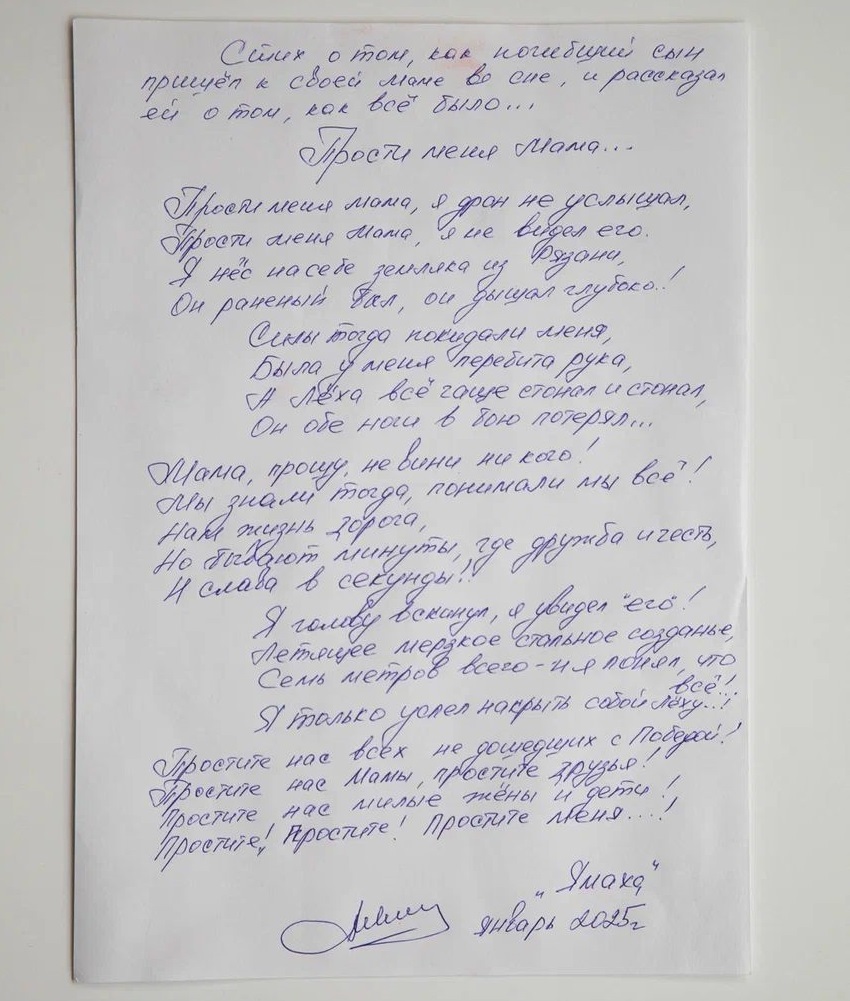 Стих о том, как погибший сын
пришёл к своей маме во сне, и рассказал
ей о том, как всё было...
Прости меня Мама...
Прости меня мама, я дрон не услышал,
Прости меня Мама, я не видел его.
Я нёс на себе земляка из Рязани,
Он раненый был, он дышал глубоко..!
Силы тогда покидали меня,
Была у меня перебита рука,
А Лёха всё чаще стонал и стонал,
Он обе ноги в бою потерял...
Мама, прошу, не вини ни кого!
Мы знали тогда, понимали мы всё!
Нам жизнь дорога,
Но бывают минуты, где дружба и честь,
И слава в секунды!!
Я голову вскинул, я увидел "его"!
Летящее мерзкое стальное созданье,
Семь метров всего - и я понял, что
всё!..
Я только успел накрыть собой Лёху..!
Простите нас всех не дошедших с Победой!
Простите нас Мамы, простите друзья!
Простите нас милые жёны и дети!
Простите! Простите! Простите меня....!
„Ямаха"
январь 2025г